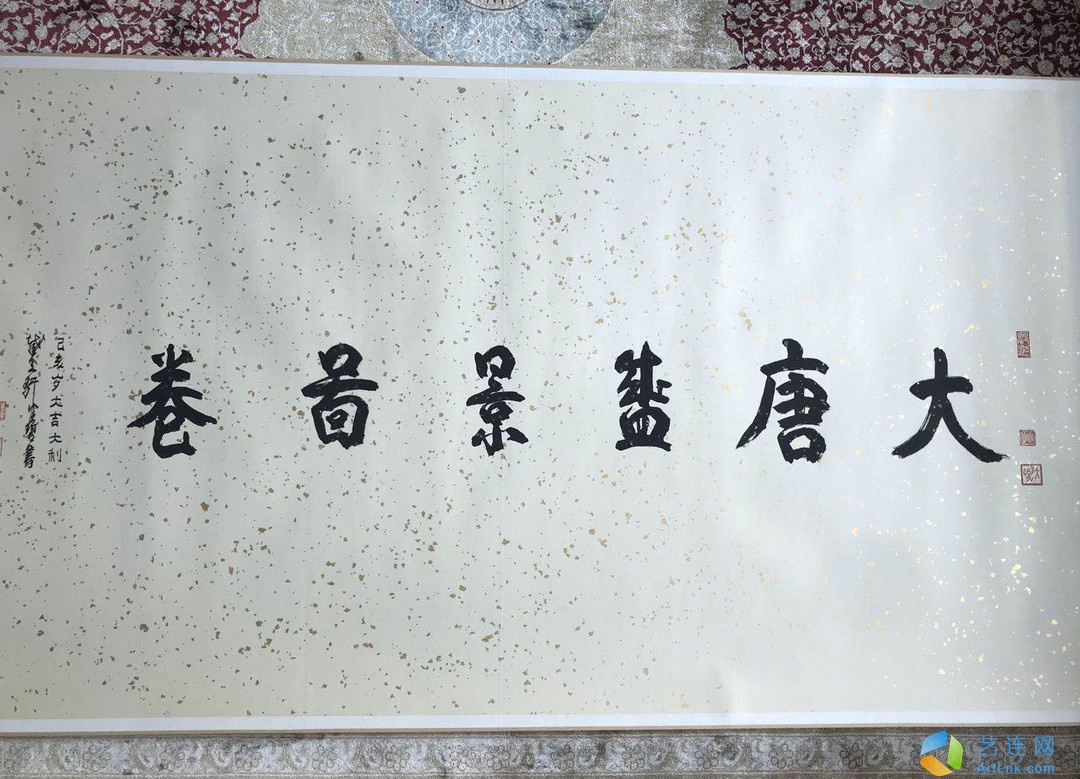 大唐盛景啚卷
己亥岁大吉大利
艺连网
Artlnk.com